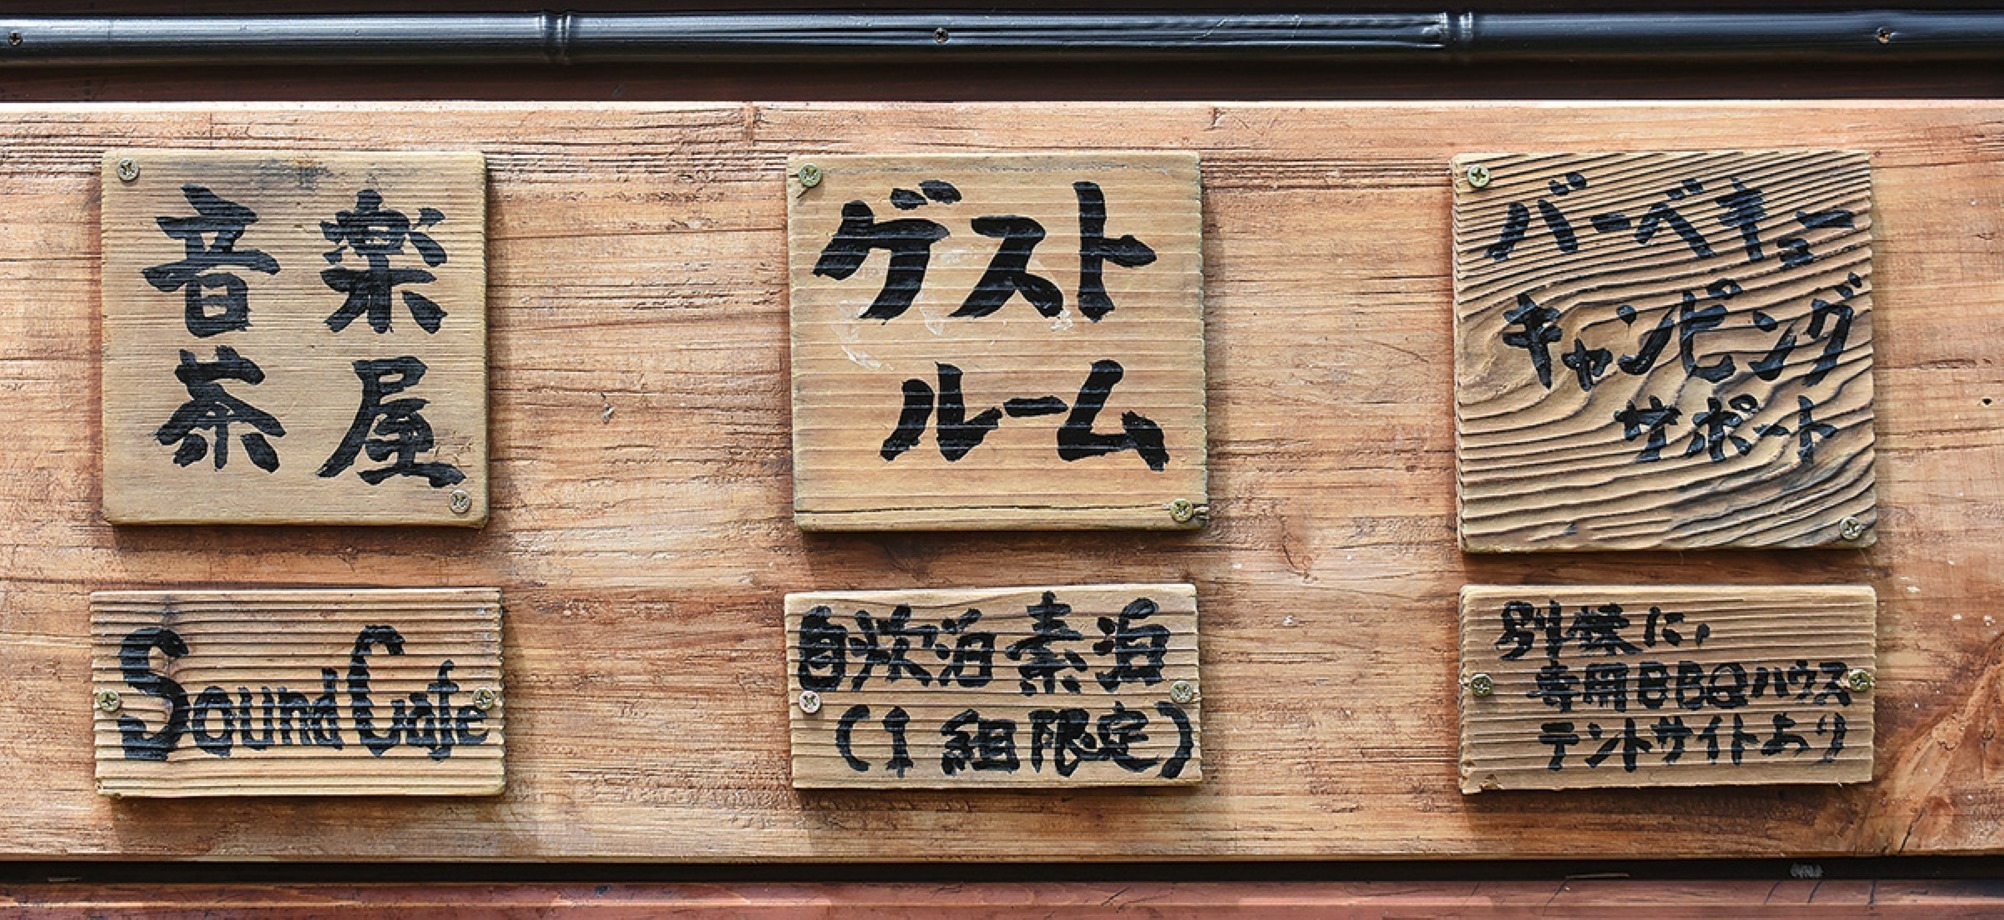 音楽
茶屋
Sound Cafe
ゲスト
ルーム
自炊泊 素泊
(1組限定)
バーベキュー
キャンピング
サポート
別様に、
専用BBQハウス
テントサイトあり